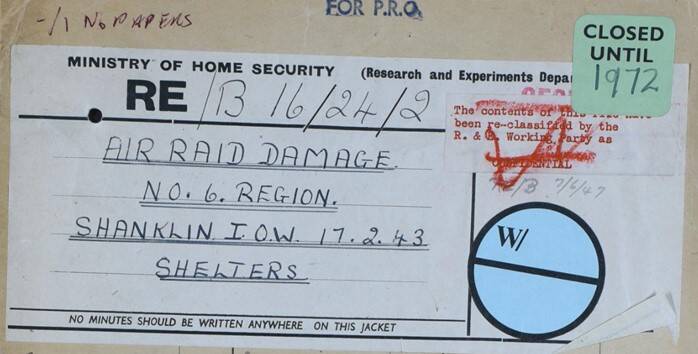 FOR P.R.O.
-/1 NO PAPERS
CLOSED
UNTIL
1972
MINISTRY OF HOME SECURITY (Research and Experiments Depa
RE/B 16/24/2
The contents of this file have
been re-classified by the
R. & E. Working Party as
CONFIDENTIAL
7/6/47
AIR RAID DAMAGE.
NO. 6. REGION.
SHANKLIN I.O.W. 17.2.43
SHELTERS
W/
NO MINUTES SHOULD BE WRITTEN ANYWHERE ON THIS JACKET